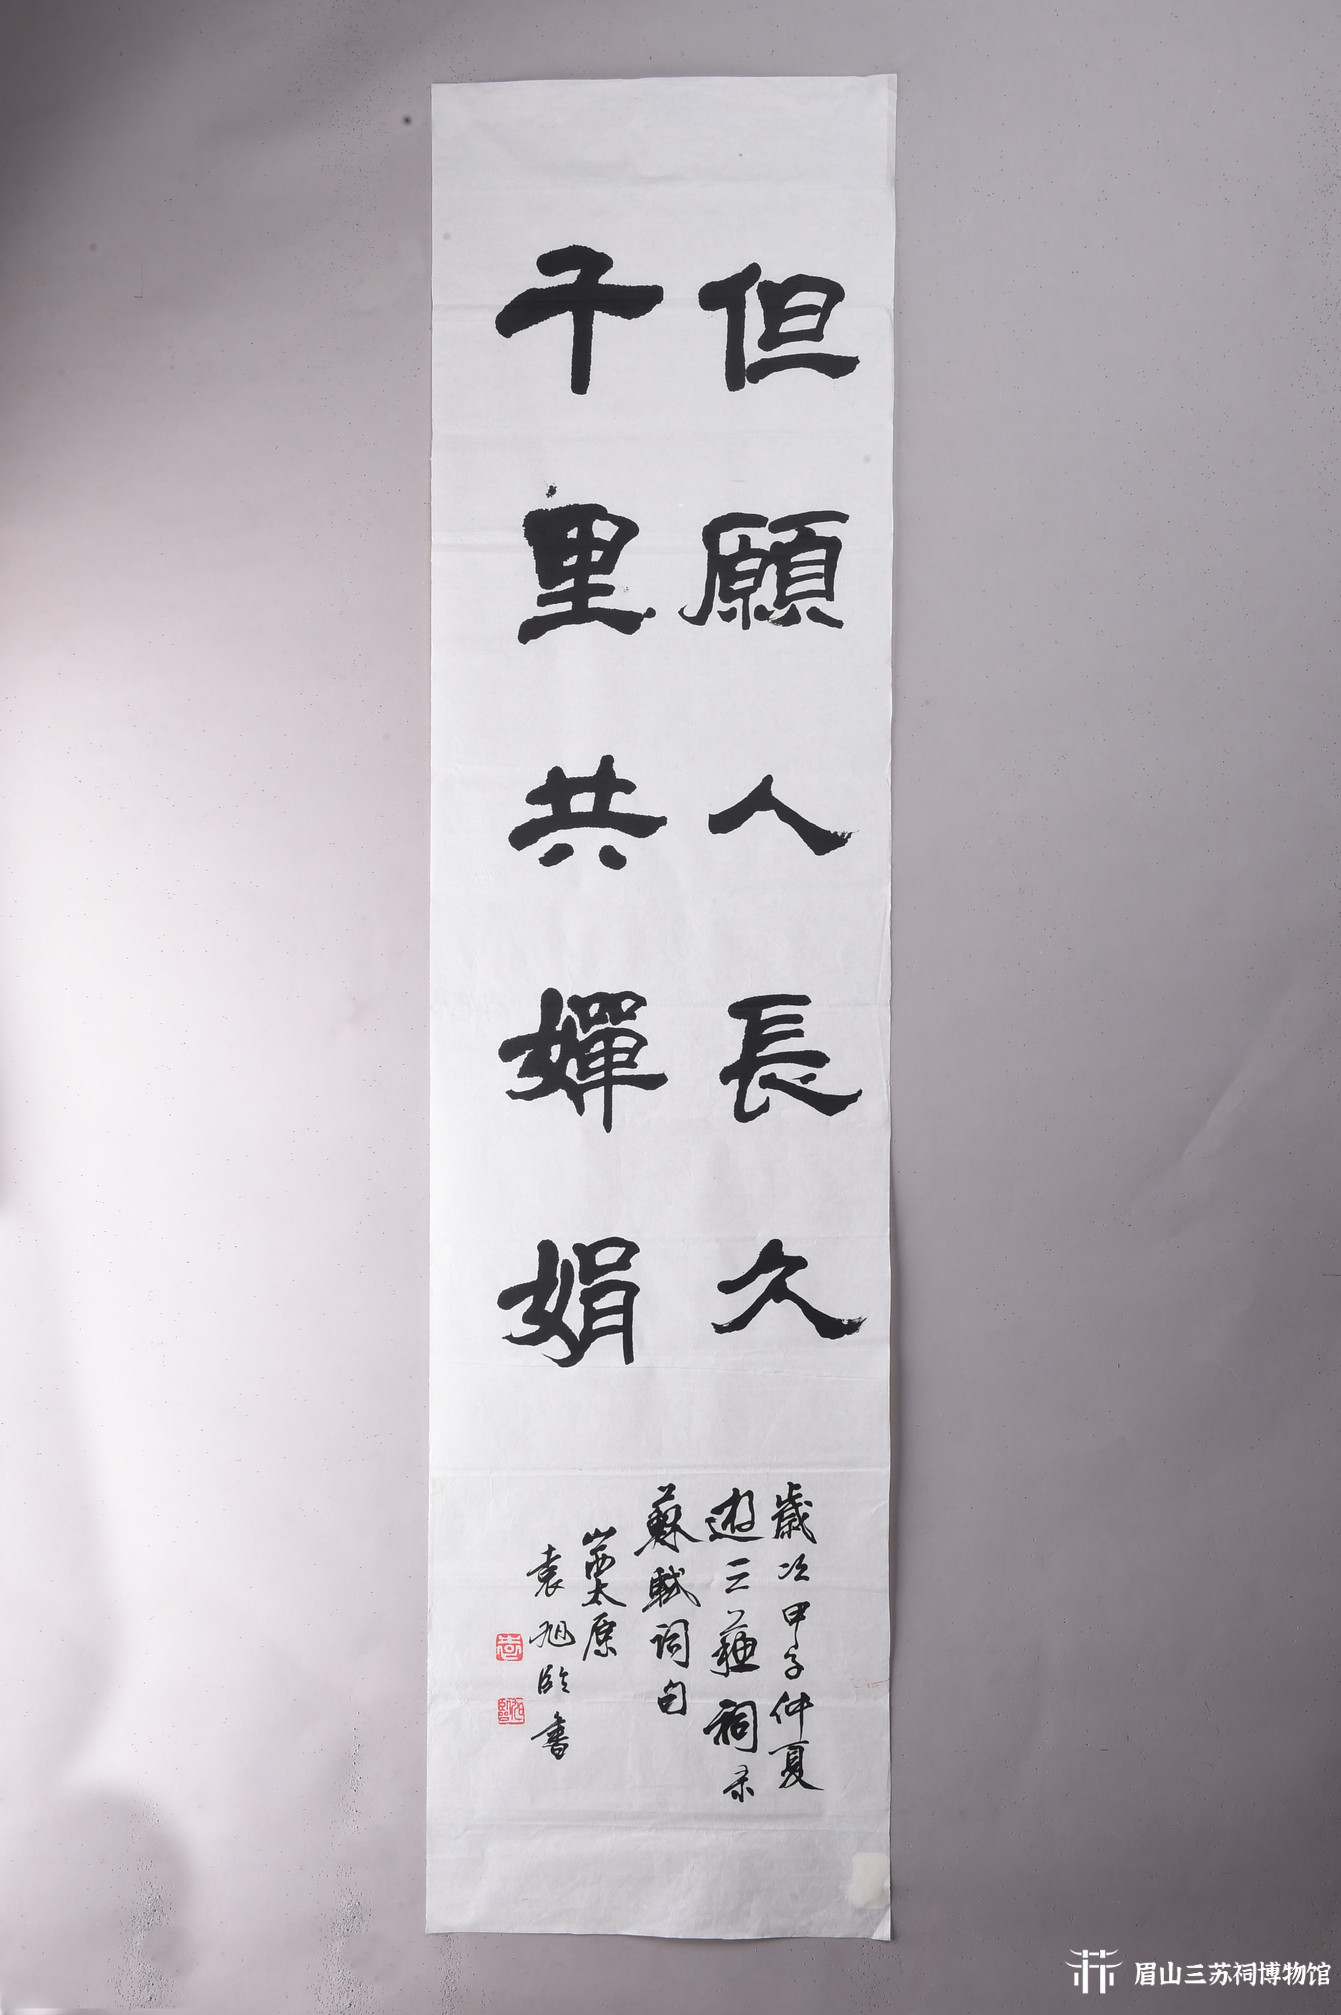 但願人長久
千里共嬋娟
歲次甲子仲夏
遊三蘇祠录
蘇軾詞句
山西太原
袁旭臨書
眉山三苏祠博物馆